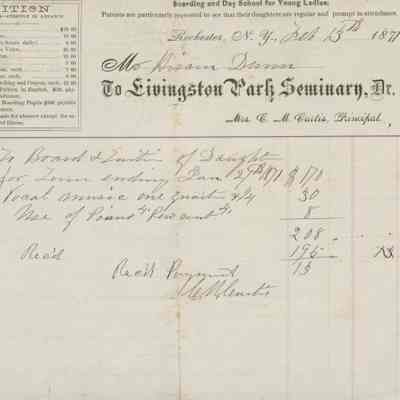 Boarding and Day School for Young Ladies.
Patrons are particularly requested to see that their daughters are regular and prompt in attendance.
Rochester, N. Y. Feb 15th 187
Mr Hiram Dunn
To Livingston Park Seminary, Dr.
Mrs. C. M. Curtis, Principal,
To Board & Tuition of Daught
for Term ending Jan 29th 1871 $ 170
Vocal music one quarter 30
Use of Piano 8
208
Rec'd 195
13
Rec'd Payment
C M Curtis